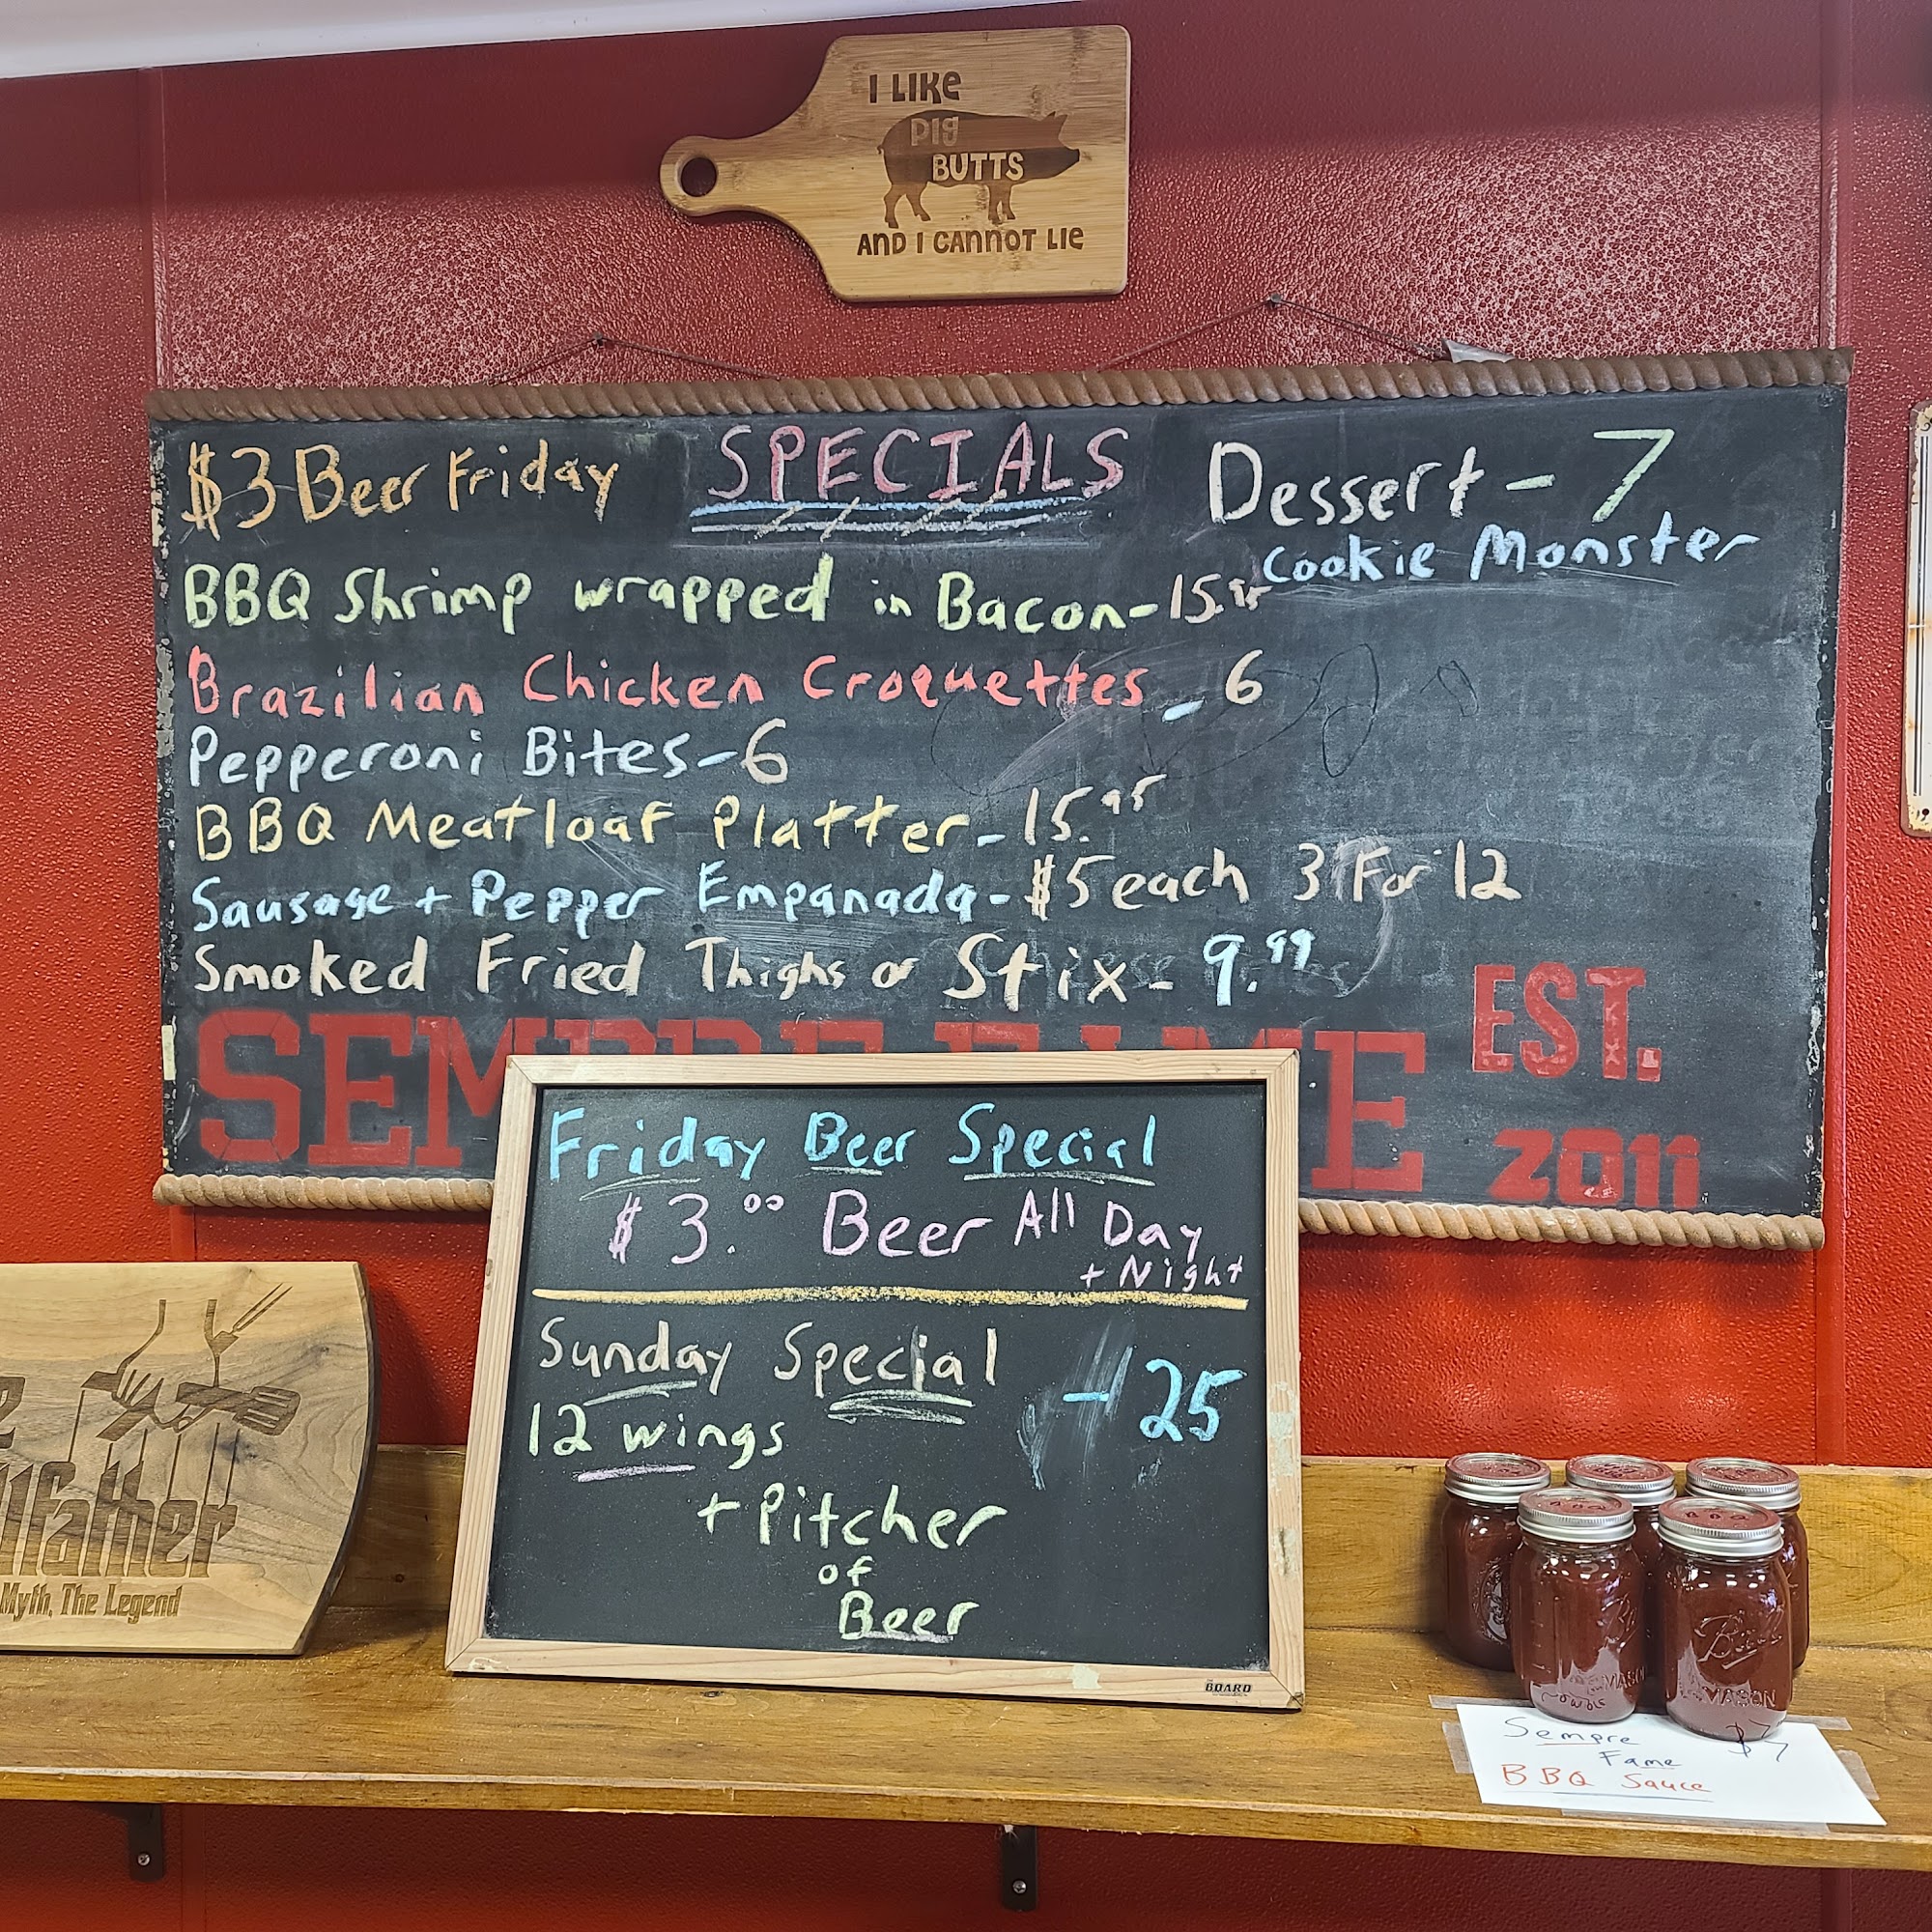 I LIKE
PIG
BUTTS
AND I CANNOT LIE
$3 Beer Friday
SPECIALS
Dessert - 7
Cookie Monster
BBQ Shrimp wrapped in Bacon - 15.95
Brazilian Chicken Croquettes - 6
Pepperoni Bites - 6
BBQ Meatloaf Platter - 15.95
Sausage + Pepper Empanada - $5 each 3 For 12
Smoked Fried Thighs or Stix - 9.99
EST.
2011
Friday Beer Special
$3.00 Beer All Day
+ Night
Sunday Special - 25
12 wings
+ Pitcher
of
Beer
BOARD
Myth, The Legend
MASON
Sempre $7
Fame
BBQ Sauce